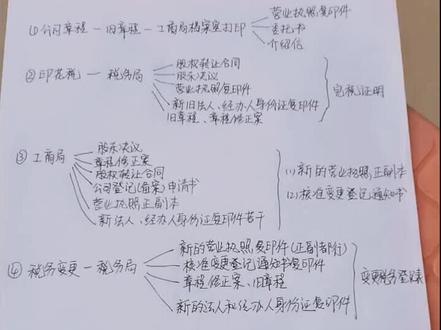 营业执照复印件
(1) 公司章程 - 旧章程 - 工商局档案室打印
委托书
介绍信
股权转让合同
股东决议
② 印花税 - 税务局
营业执照复印件
完税证明
新旧法人、经办人身份证复印件
旧章程、章程修正案
股东决议
章程修正案
③ 工商局
股权转让合同
(1) 新的营业执照正副本
公司登记(备案)申请书
(2) 核准变更登记通知书
营业执照正副本
新法人、经办人身份证复印件若干
新的营业执照复印件(正副都行)
核准变更登记通知书复印件
④ 税务变更 - 税务局
变更税务登记表
章程修正案、旧章程
新的法人和经办人身份证复印件